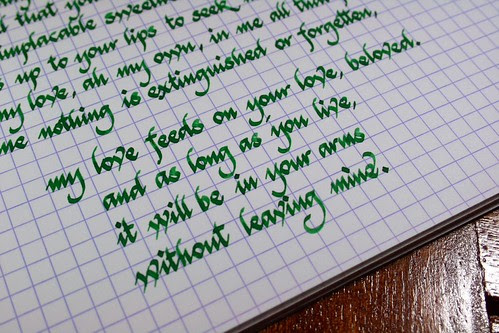 that you
implacable
up to your lips to seek
my love, ah my own, in me all that
me nothing is extinguished or forgotten,
my love feeds on your love, beloved.
and as long as you live,
it will be in your arms
without leaving mine.